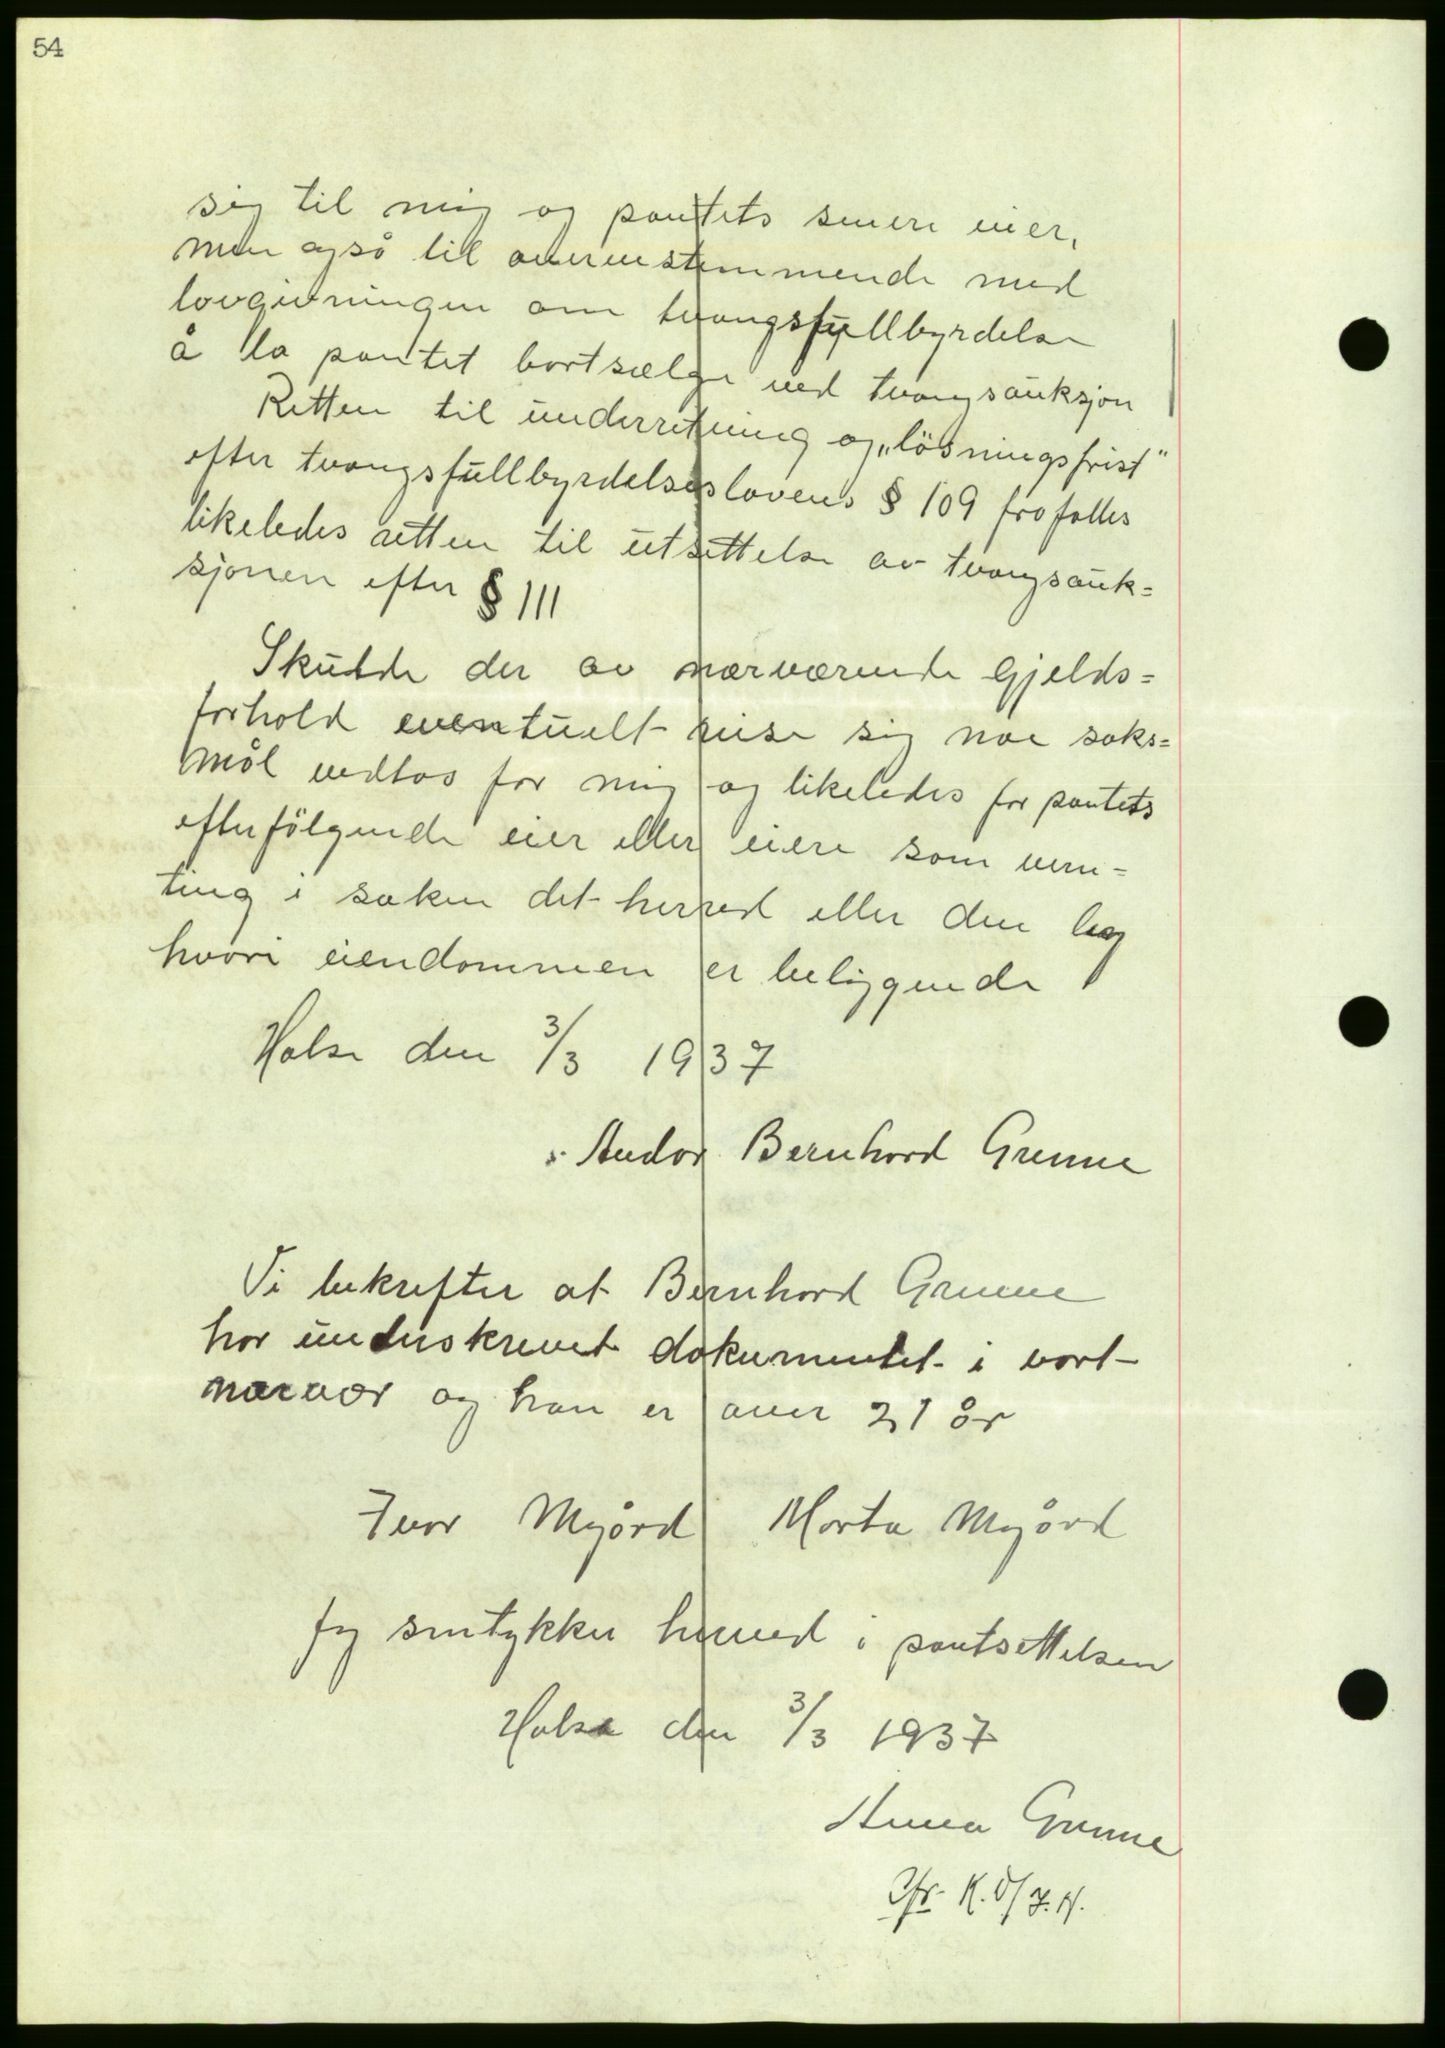 54
sig til mig og pantets senere eier,
men også til overenstemmende med
lovgivningen om tvangsfullbyrdelse
å la pantet bortsælge ved tvangsauksjon
Retten til underretning og „lösningsfrist"
efter tvangsfullbyrdelseslovens § 109 frafalles
likeledes retten til utsettelse av tvangsauk=
sjonen efter § 111
Skulde der av nærværende gjelds=
forhold eventuelt reise sig noe saks=
mål vedtas for mig og likeledes for pantets
efterfölgende eier eller eiere som vern=
ting i saken det herred eller den by
hvori eiendommen er beliggende
Halsa den 3/3 1937
Andor Bernhard Grenne
Vi bekrefter at Bernhard Grenne
har underskrevet dokumentet i vort
nærvær og han er over 21 år
Ivar Myård Marta Myård
Jeg samtykker herved i pantsettelsen
Halsa den 3/3 1937
Anna Grenne
Jfr. K.